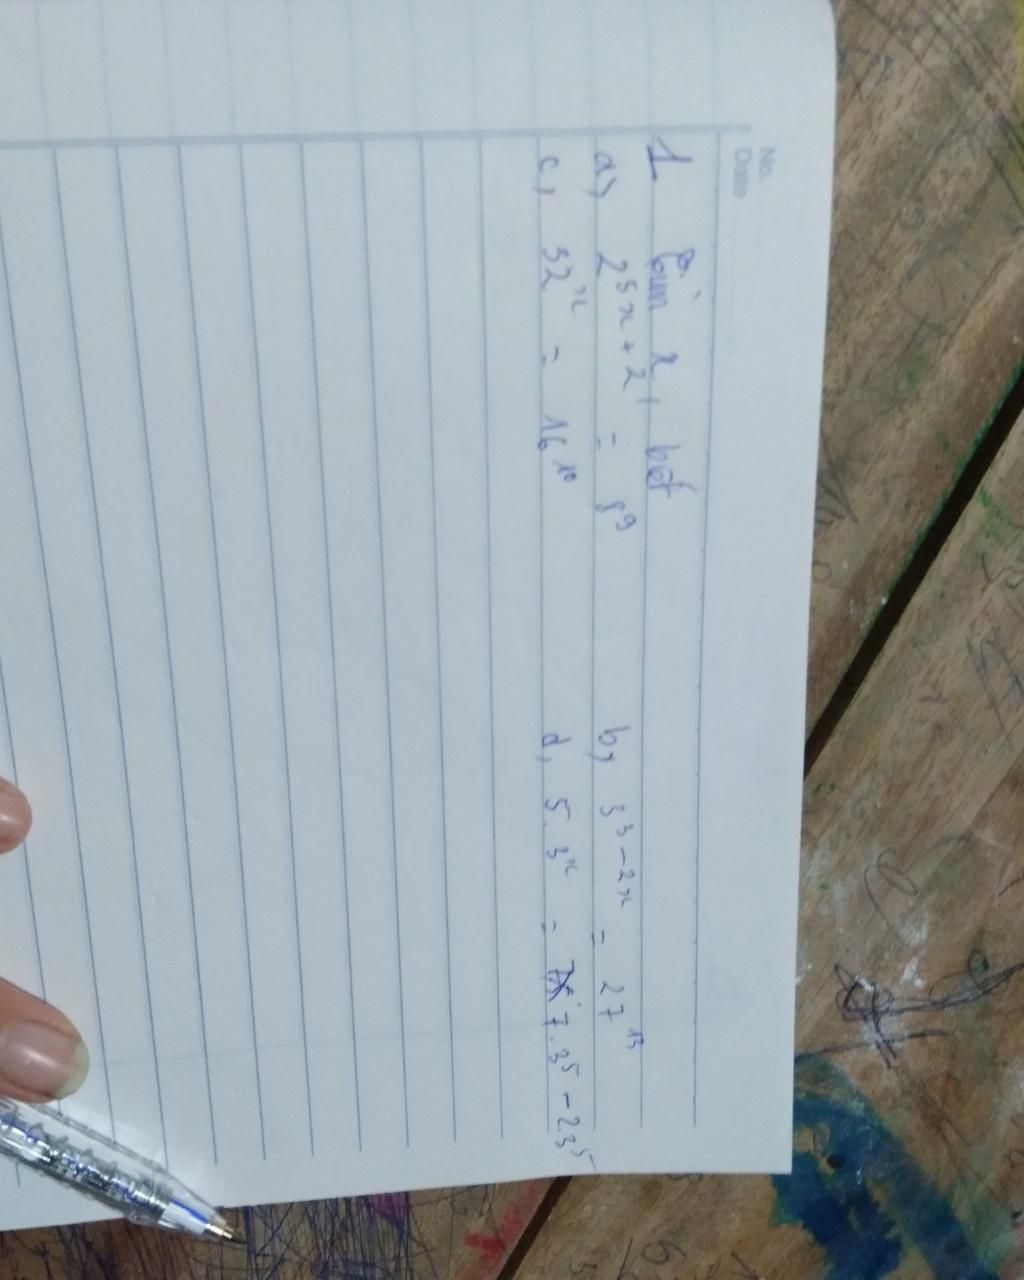 No.
Date
1. Tìm x, biết
a, 2^5x+2 = 8^9 b, 3^3-2x = 27^13
c, 32^x = 16^10 d, 5.3^x = 7.3^5 - 2.3^5